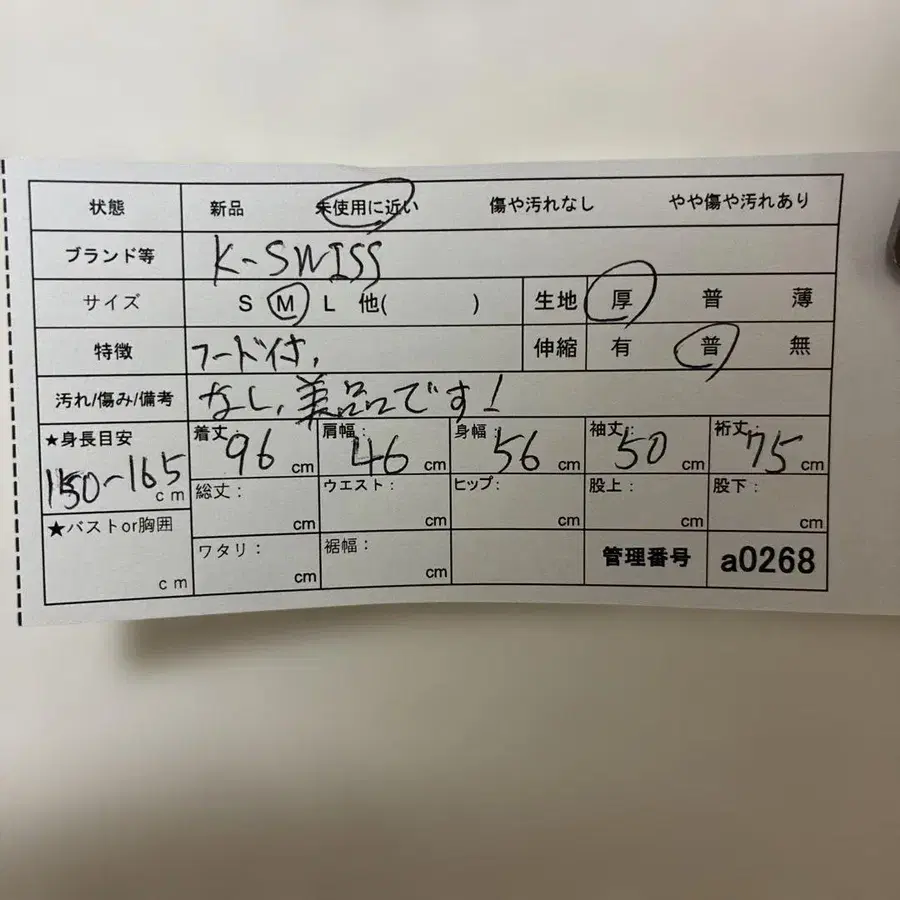 状態 新品 未使用に近い 傷や汚れなし やや傷や汚れあり
ブランド等 K-SWISS
サイズ S M L 他( ) 生地 厚 普 薄
特徴 フード付, 伸縮 有 普 無
汚れ/傷み/備考 なし、美品です!
★身長目安 着丈: 肩幅: 身幅: 袖丈: 裄丈:
150~165 cm 96 cm 46 cm 56 cm 50 cm 75 cm
総丈: ウエスト: ヒップ: 股上: 股下:
cm cm cm cm cm
★バストor胸囲 ワタリ: 裾幅: 管理番号 a0268
cm cm cm